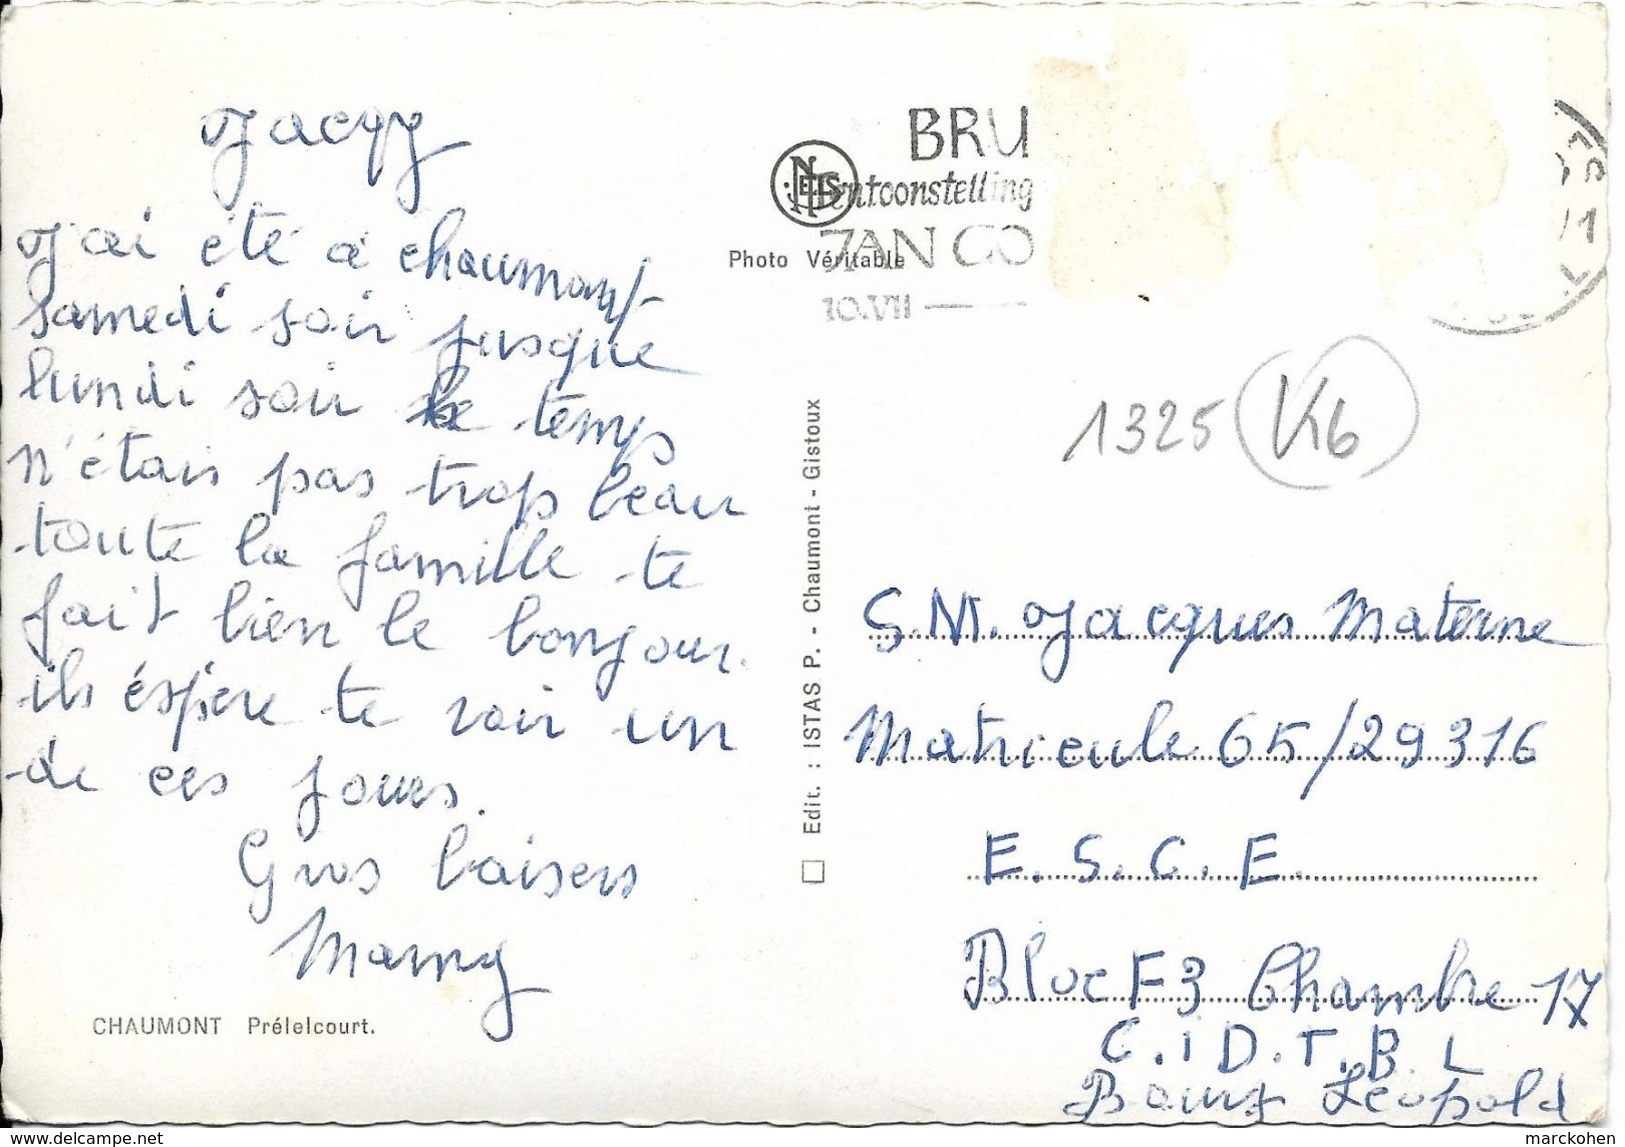 Jacqy
J'ai été à chaumont
samedi soir jusque
lundi soir le temps
n'étais pas trop beau
toute la famille te
fait bien le bonjour.
ils éspère te voir un
de ces jours.
Gros baisers
Mamy
CHAUMONT Prélelcourt.
NELS
Photo Véritable
BRU
tentoonstelling
JAN GO
10.VII
Edit. : ISTAS P. - Chaumont - Gistoux
1325 Kb
S.M. Jacques Materne
Matricule 65/29316
E.S.C.E.
Bloc F3 Chambre 17
C.I D.T.B.L
Bourg Léopold
delcampe.net
marckohen